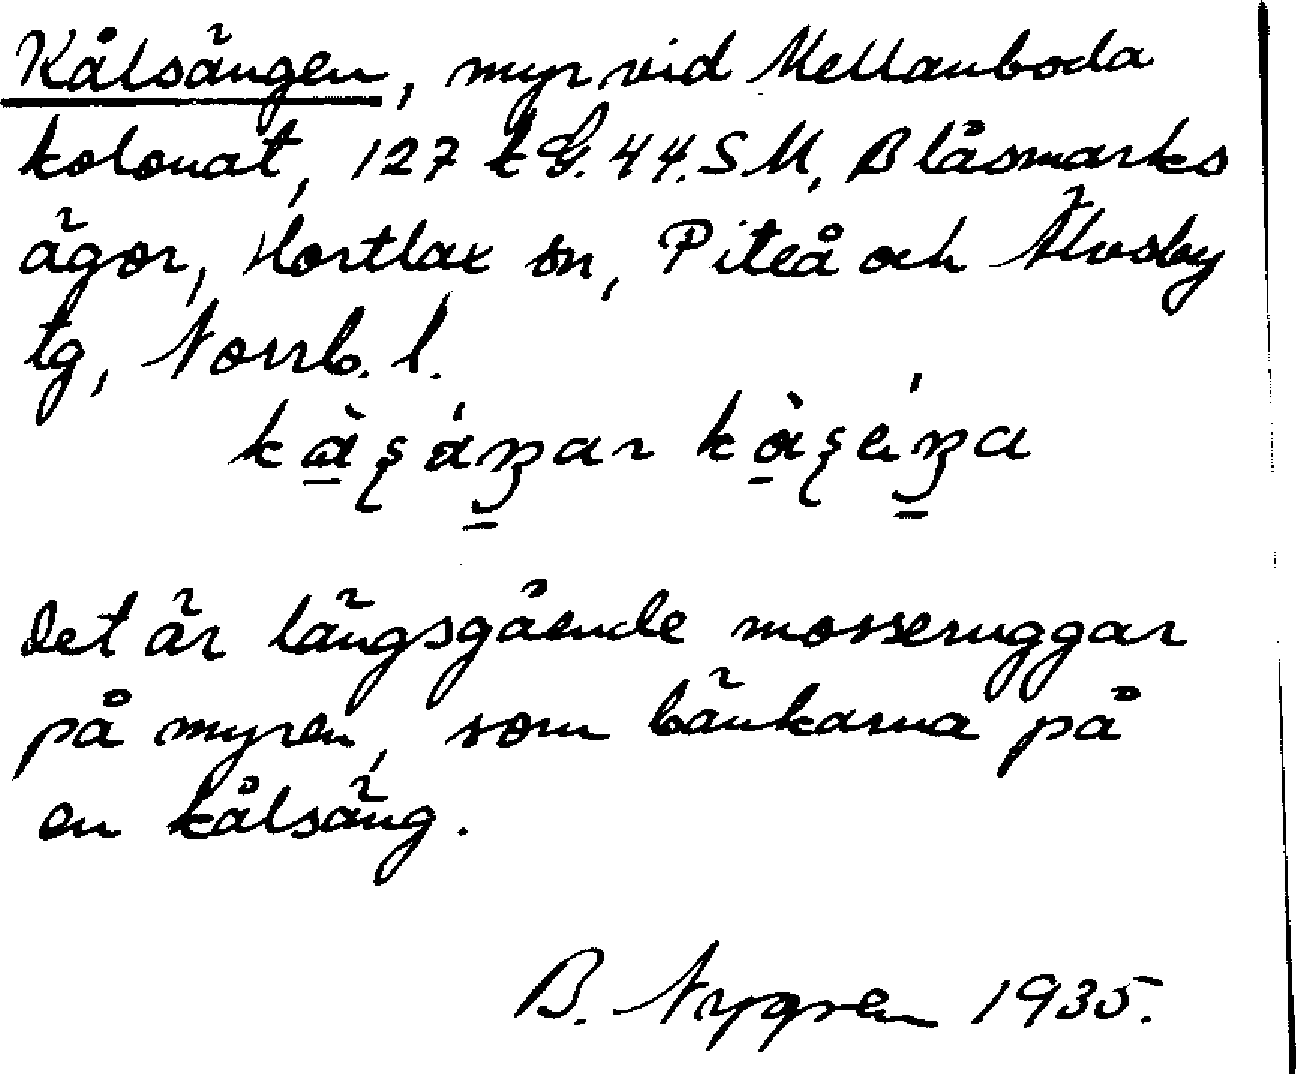 Kålsängen, myr vid Mellanboda
kolonat, 127 k G. 44. S M, Blåsmarks
ägor, Hortlax sn, Piteå och Älvsby
tg, Norrb. l.
Det är långsgående mosseruggar
på myren, som bänkarna på
en kålsäng.
B. Nygren 1935.